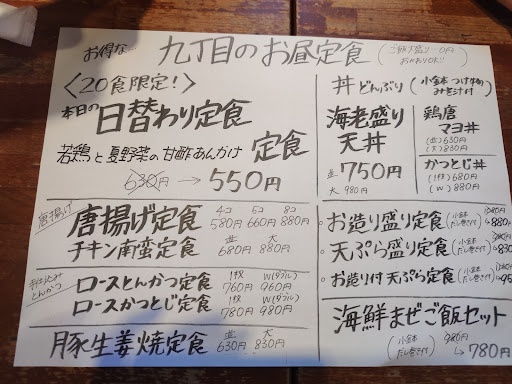 お得な… 九丁目のお昼定食
(ご飯大盛り 0円
おかわりOK!!)
<20食限定!>
本日の日替わり定食
若鶏と夏野菜の甘酢あんかけ 定食
630円 → 550円
唐揚げ
唐揚げ定食 4コ 580円 5コ 660円 8コ 880円
チキン南蛮定食 並 680円 大 880円
手仕込み
とんかつ
ロースとんかつ定食 1枚 760円 W(ダブル) 960円
ロースかつとじ定食 1枚 780円 W(ダブル) 980円
豚生姜焼定食 並 630円 大 830円
丼 どんぶり (小鉢 つけ物
みそ汁付)
海老盛り
天丼
並 750円
大 980円
鶏唐
マヨ丼
(並) 630円
(大) 830円
かつとじ丼
(1枚) 680円
(W) 880円
お造り盛り定食 (小鉢 だし巻き付) 980円 → 880
天ぷら盛り定食 (小鉢 だし巻き付) 980円
お造り付 天ぷら定食 (小鉢 だし巻き付)
海鮮まぜご飯セット
(小鉢 だし巻き付) 980円
→ 780円